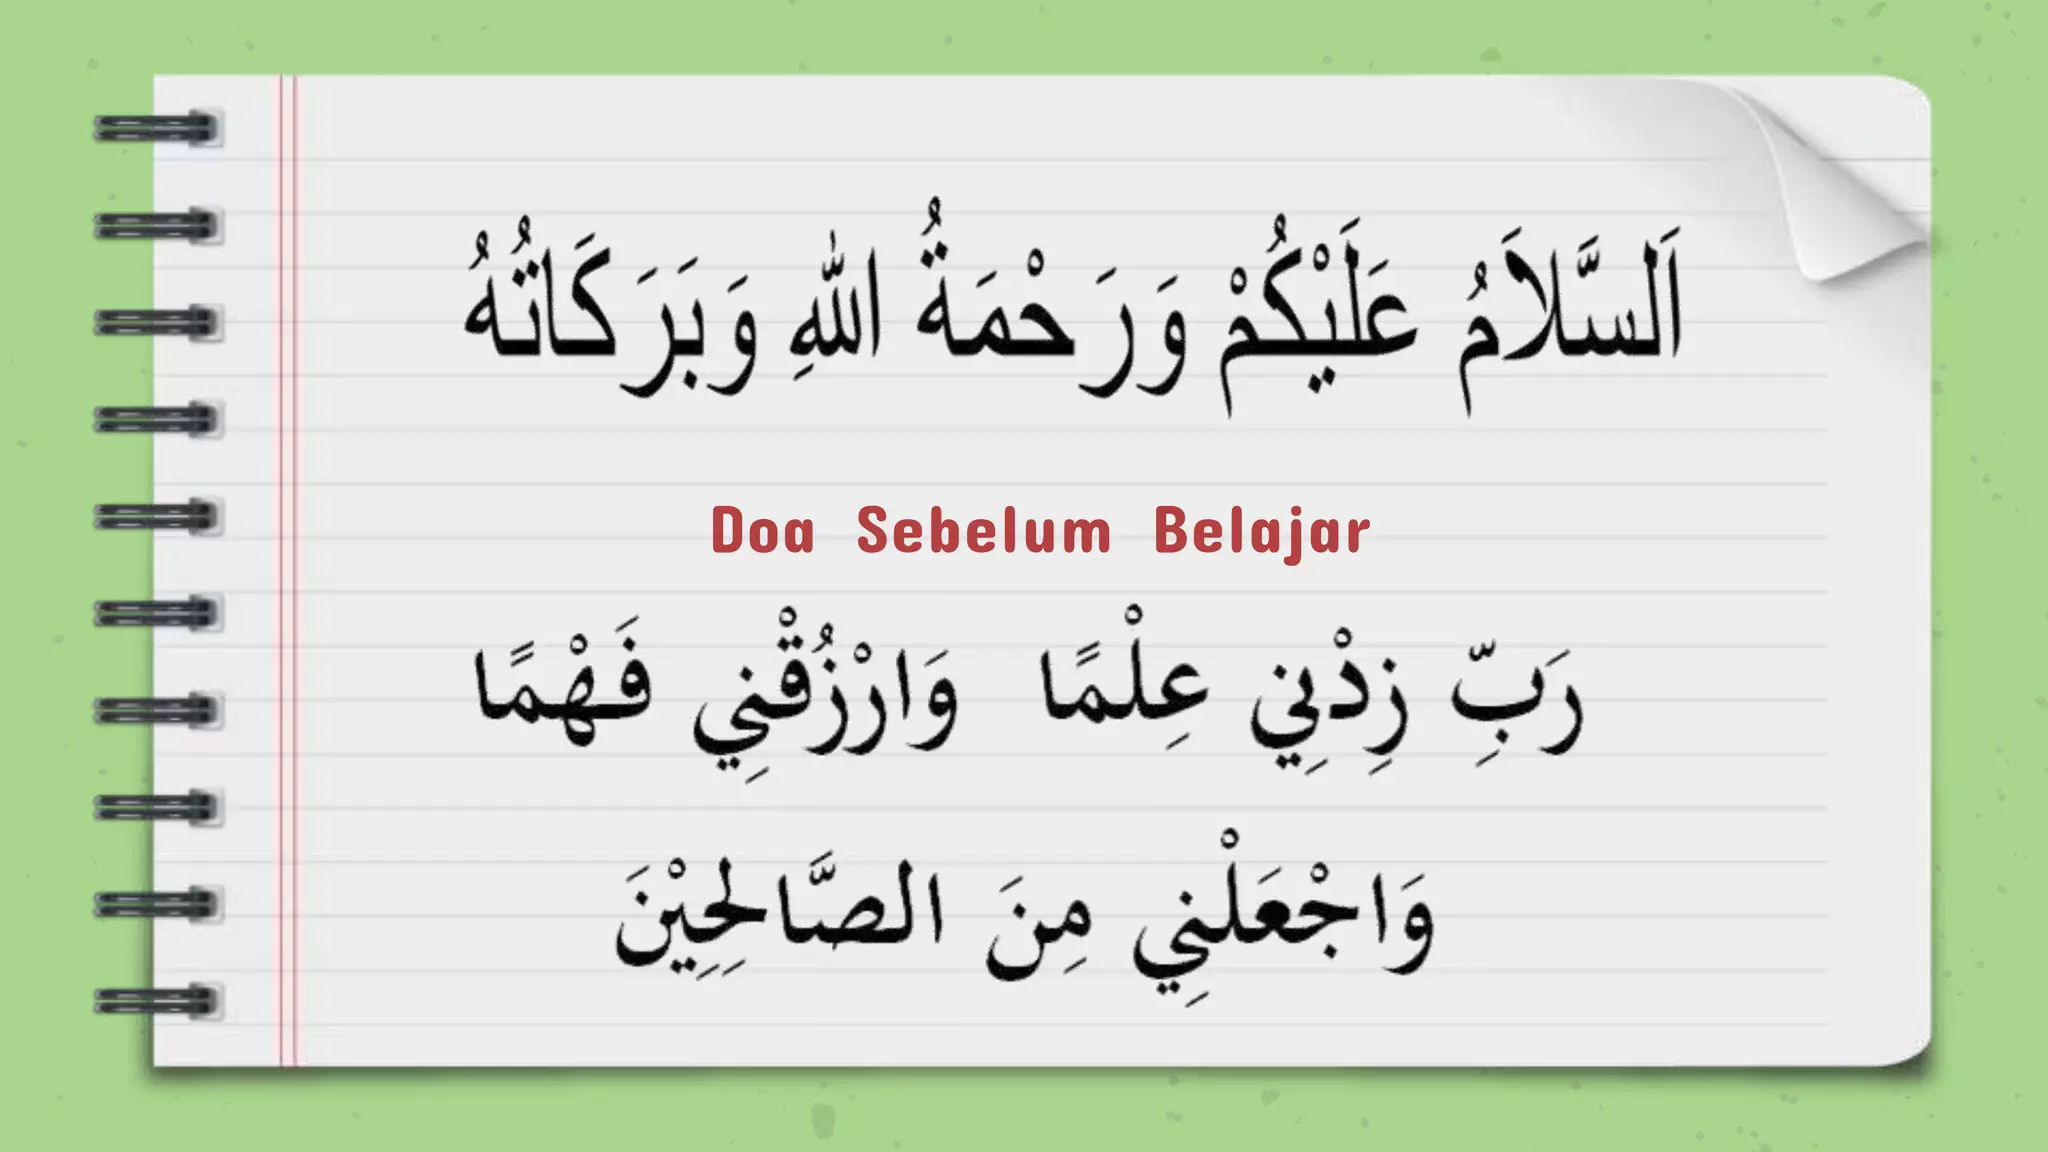 اَلسَّلاَمُ عَلَيْكُمْ وَرَحْمَةُ اللهِ وَبَرَكَاتُهُ
Doa Sebelum Belajar
رَبِّ زِدْنِي عِلْمًا وَارْزُقْنِي فَهْمًا
وَاجْعَلْنِي مِنَ الصَّالِحِيْنَ